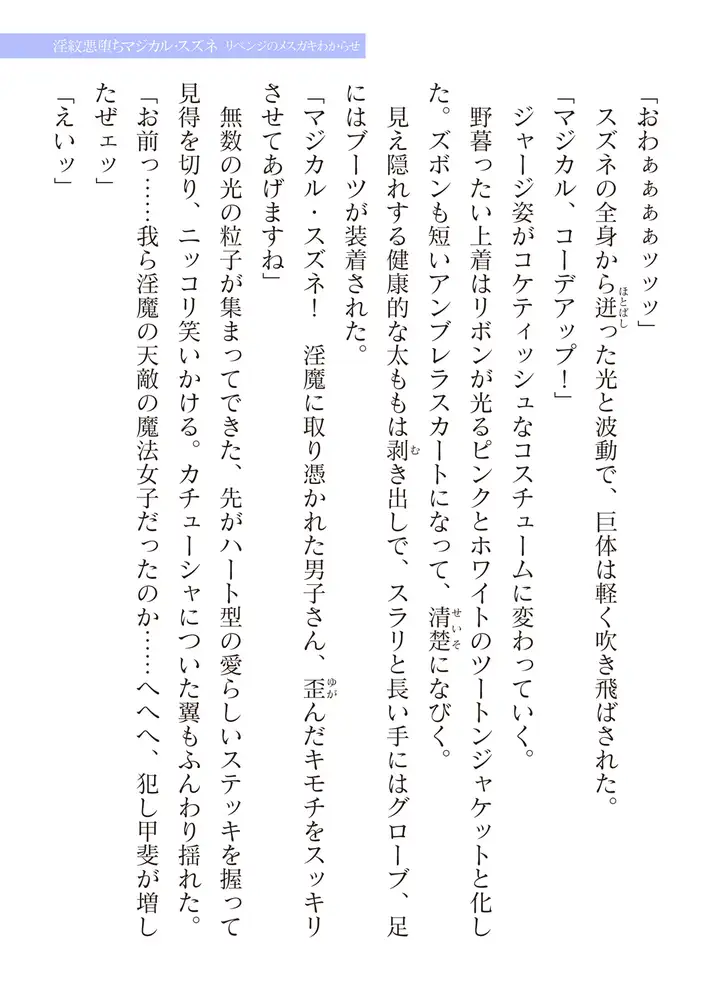 淫紋悪堕ちマジカル・スズネ リベンジのメスガキわからせ
「おわぁぁぁぁッッッ」
　スズネの全身から迸った光と波動で、巨体は軽く吹き飛ばされた。
「マジカル、コーデアップ！」
　ジャージ姿がコケティッシュなコスチュームに変わっていく。
　野暮ったい上着はリボンが光るピンクとホワイトのツートンジャケットと化し
た。ズボンも短いアンブレラスカートになって、清楚になびく。
　見え隠れする健康的な太ももは剥き出しで、スラリと長い手にはグローブ、足
にはブーツが装着された。
「マジカル・スズネ！　淫魔に取り憑かれた男子さん、歪んだキモチをスッキリ
させてあげますね」
　無数の光の粒子が集まってできた、先がハート型の愛らしいステッキを握って
見得を切り、ニッコリ笑いかける。カチューシャについた翼もふんわり揺れた。
「お前っ……我ら淫魔の天敵の魔法女子だったのか……へへへ、犯し甲斐が増し
たぜェッ」
「えいッ」